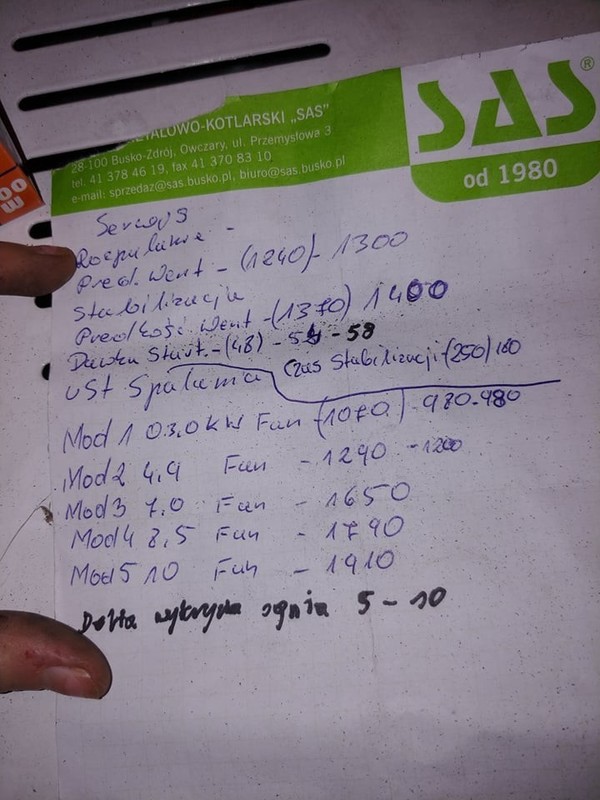 SAS®
od 1980
METALOWO-KOTLARSKI „SAS"
28-100 Busko-Zdrój, Owczary, ul. Przemysłowa 3
tel. 41 378 46 19, fax 41 370 83 10
e-mail: sprzedaz@sas.busko.pl, biuro@sas.busko.pl
Serwys
Rozpalanie -
Pred. Went - (1240) - 1300
Stabilizacja
Predkość Went - (1370) 1400
Dawka Start. - (48) - 54 - 58
Czas Stabilizacji - (250) 180
USt Spalania
Mod 1 03,0 kW Fan (1070) 980-980
Mod 2 4,9 Fan - 1290 - 1200
Mod 3 7,0 Fan - 1650
Mod 4 8,5 Fan - 1790
Mod 5 10 Fan - 1910
Delta wykrycia ognia 5 - 10